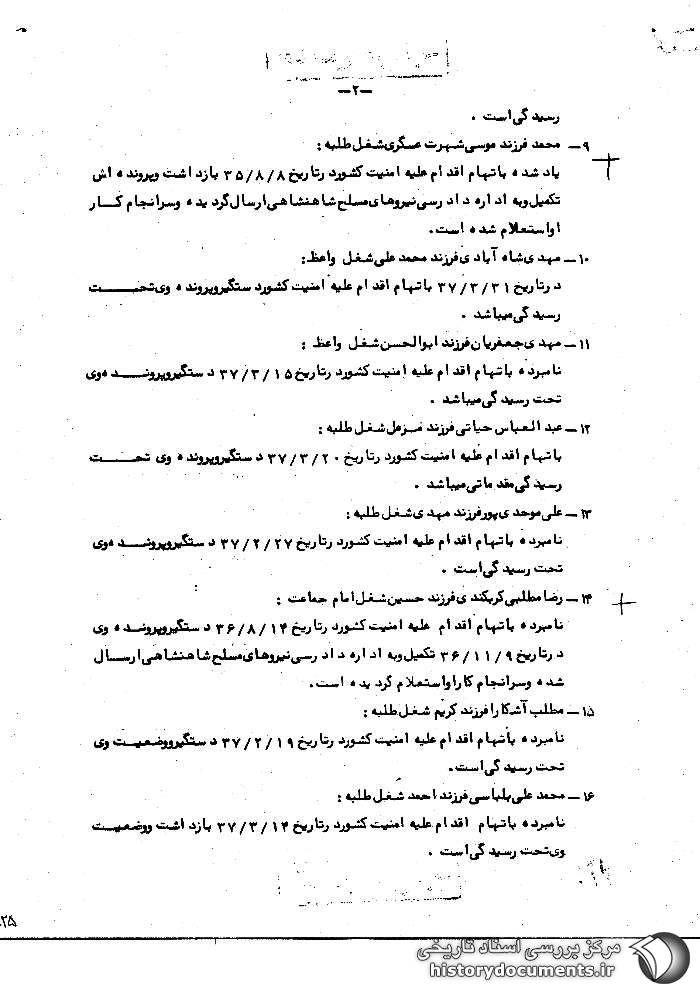 -۲-
رسیدگی است .
۹ــ محمد فرزند موسی شهرت عسگری شغل طلبه :
یاد شده باتهام اقدام علیه امنیت کشور در تاریخ ۳۵/۸/۸ بازداشت و پرونده اش
تکمیل و به اداره دادرسی نیروهای مسلح شاهنشاهی ارسال گردیده و سرانجام کار
او استعلام شده است.
۱۰ــ مهدی شاه آبادی فرزند محمد علی شغل واعظ:
در تاریخ ۳۷/۳/۳۱ باتهام اقدام علیه امنیت کشور دستگیر و پرونده وی تحت
رسیدگی میباشد .
۱۱ــ مهدی جعفریان فرزند ابوالحسن شغل واعظ :
نامبرده باتهام اقدام علیه امنیت کشور در تاریخ ۳۷/۳/۱۵ دستگیر و پرونده وی
تحت رسیدگی میباشد .
۱۲ــ عبدالعباس حیاتی فرزند مزمل شغل طلبه :
باتهام اقدام علیه امنیت کشور در تاریخ ۳۷/۳/۲۰ دستگیر و پرونده وی تحت
رسیدگی مقدماتی میباشد .
۱۳ــ علی موحدی پور فرزند مهدی شغل طلبه :
نامبرده باتهام اقدام علیه امنیت کشور در تاریخ ۳۷/۲/۲۷ دستگیر و پرونده وی
تحت رسیدگی است .
۱۴ــ رضا مطلبی کربکندی فرزند حسین شغل امام جماعت :
نامبرده باتهام اقدام علیه امنیت کشور در تاریخ ۳۶/۸/۱۴ دستگیر و پرونده وی
در تاریخ ۳۶/۱۱/۹ تکمیل و به اداره دادرسی نیروهای مسلح شاهنشاهی ارسال
شده و سرانجام کار او استعلام گردیده است.
۱۵ــ مطلب آشکارا فرزند کریم شغل طلبه :
نامبرده باتهام اقدام علیه امنیت کشور در تاریخ ۳۷/۲/۱۹ دستگیر و وضعیت وی
تحت رسیدگی است.
۱۶ــ محمد علی بلباسی فرزند احمد شغل طلبه :
نامبرده باتهام اقدام علیه امنیت کشور در تاریخ ۳۷/۳/۱۴ بازداشت و وضعیت
وی تحت رسیدگی است .
۲۵
مرکز بررسی اسناد تاریخی
historydocuments.ir